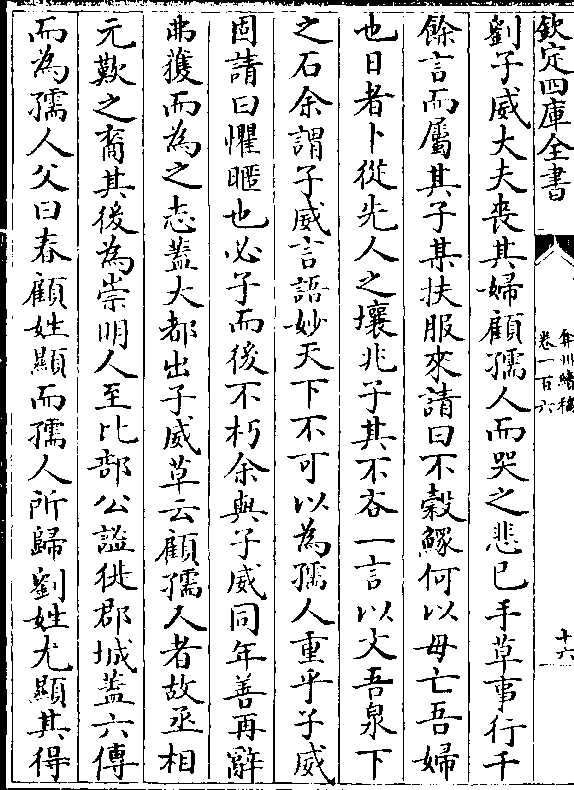 欽定四庫全書
弇州續稿
卷一百六
十六
劉子威大夫喪其婦顧孺人而哭之悲已手草事行千
餘言而屬其子某扶服來請曰不穀鰥何以毋亡吾婦
也日者卜從先人之壤兆子其不吝一言以大吾泉下
之石余謂子威言語妙天下不可以為孺人重乎子威
固請曰懼暱也必子而後不朽余與子威同年善再辭
弗獲而為之志蓋大都出子威草云顧孺人者故丞相
元歎之裔其後為崇明人至比部公謐徙郡城蓋六傳
而為孺人父曰春顧姓顯而孺人所歸劉姓尤顯其得